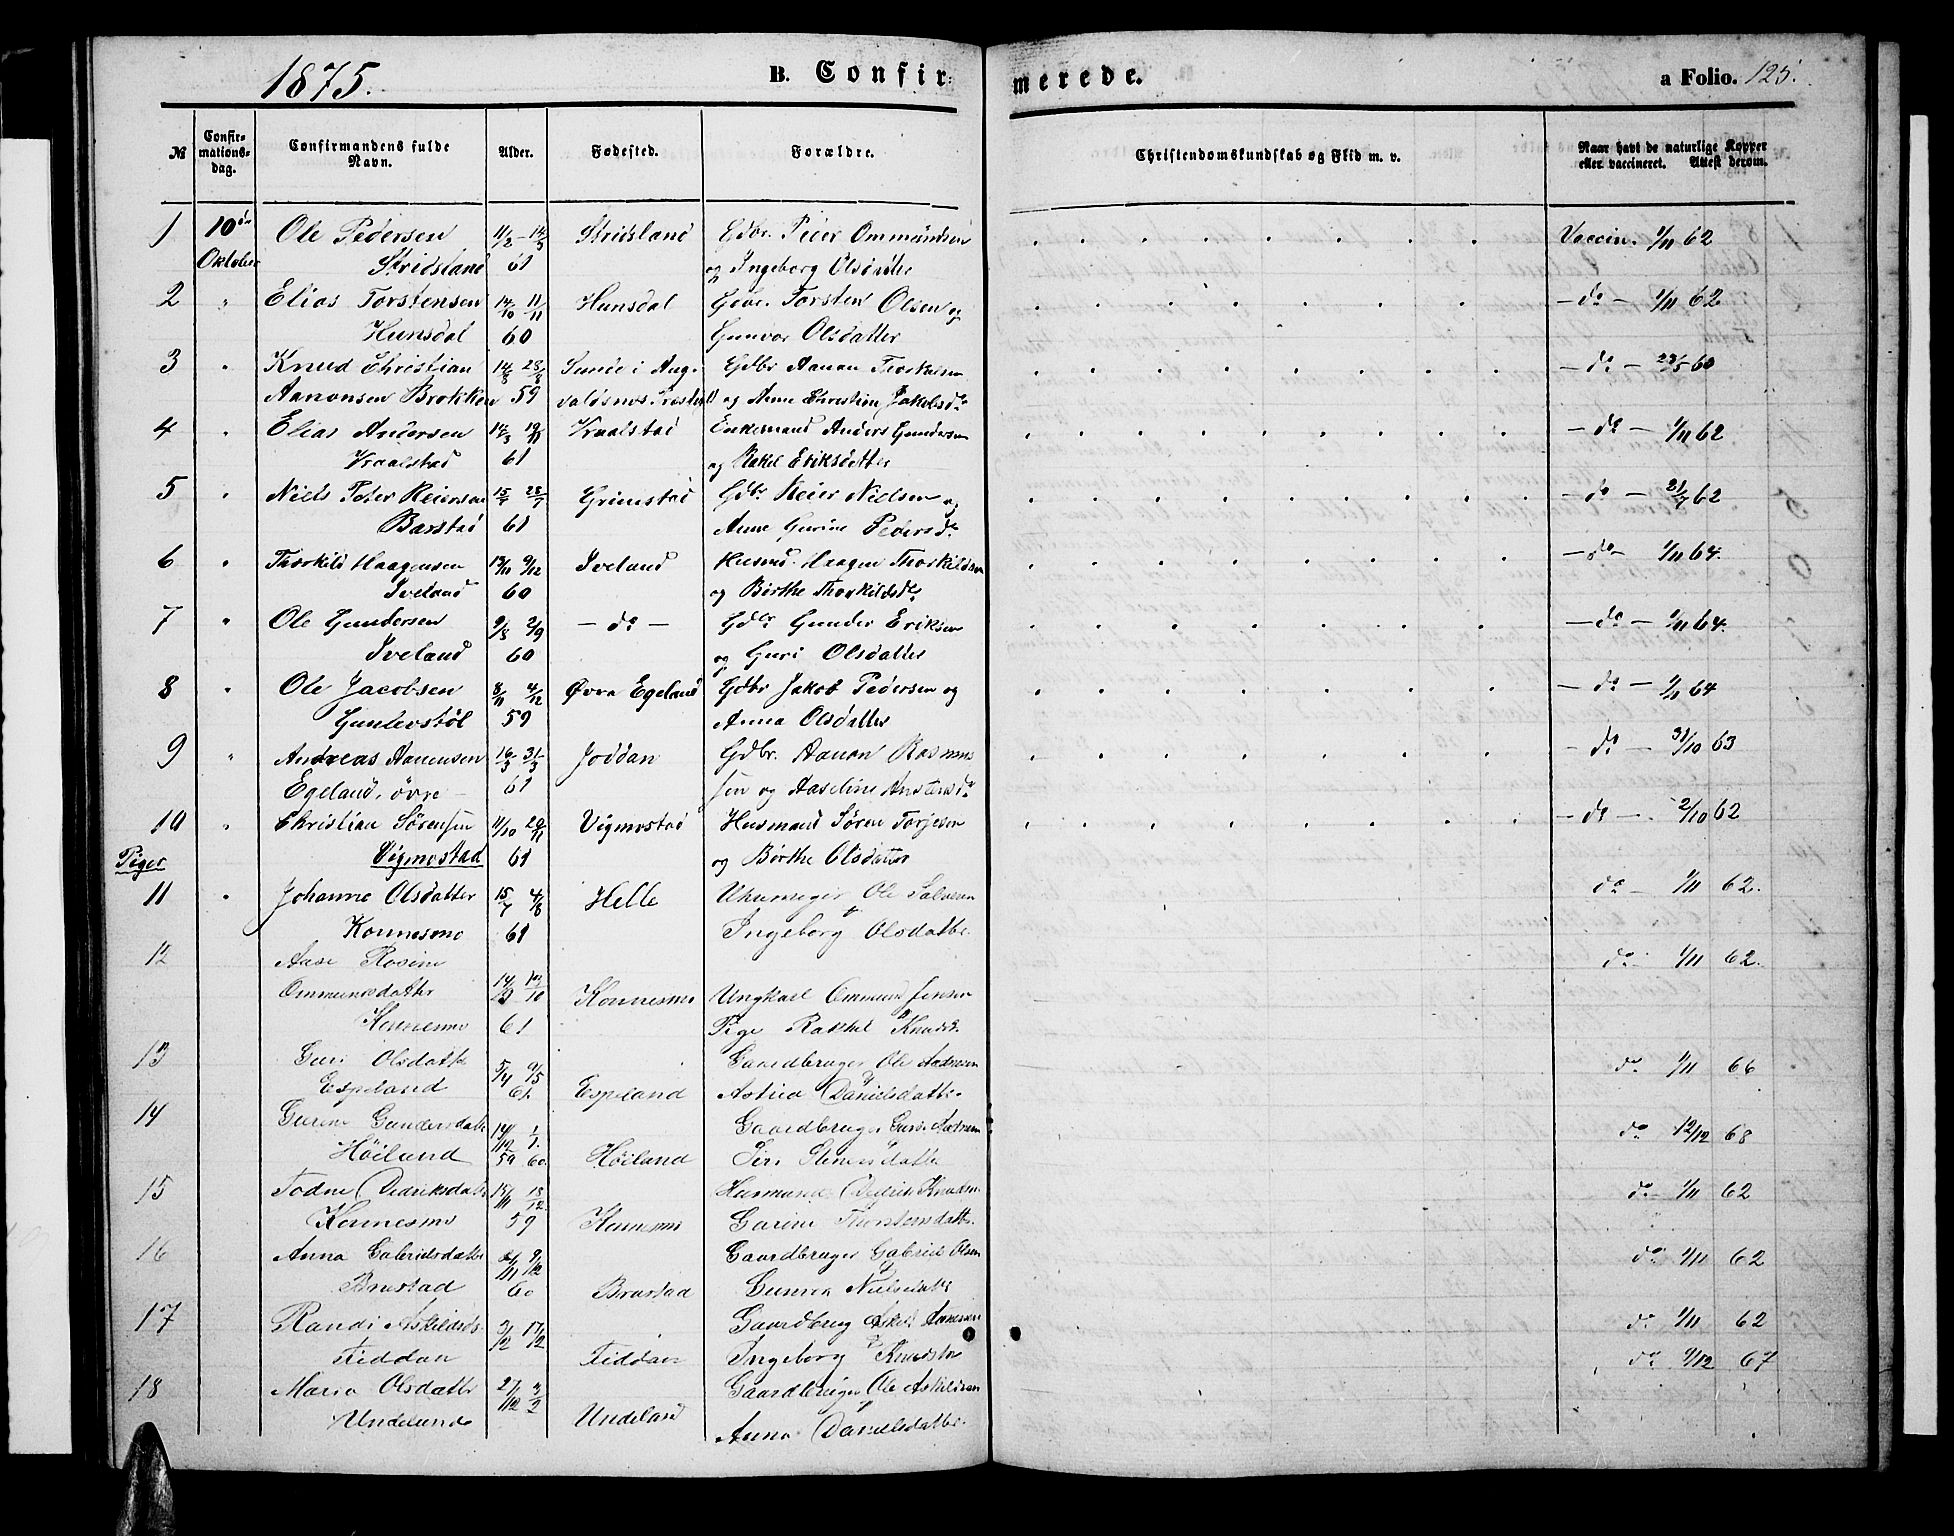 1875. B. Confir: merede. a Folio. 125.
№ Confir-mations-dag. Confirmandens fulde Navn. Alder. Fødested. Forældre. Christendomskundskab og Flid m. v. Naar havt de naturlige Kopper eller vaccineret. Attest derom.
1 10de Ole Pedersen 11/2 – 14/3 Stridsland Gdbr. Peder Ommundsen Vaccin. 1/11 62
Oktober Stridsland 61 og Ingeborg Olsdatter
2 " Elias Torstensen 14/10 11/11 Hunsdal Gdbr. Torsten Olsen og – do – 1/11 62
Hunsdal 60 Gunvor Olsdatter
3 " Knud Christian 14/8 28/8 Sunde i Aug- Gdbr Aanon Thorkelsen – do – 60
Aanonsen Brokken 59 og Anne Christine Jakobsd.
4 " Elias Andersen 14/3 19/11 Vraalstad Enkemand Anders Gundersen – do – 1/11 62
Vraalstad 61 og Rakel Eriksdatter
5 " Niels Peter Reiersen 15/7 28/7 Grimstad Gdbr Reier Nielsen og – do – 21/7 62
Barstad 61 Anne Gurine Pedersd.
6 " Thorkild Haagensen 13/11 9/12 Iveland Husmd. Haagen Thorkildsen – do – 1/11 64.
Iveland 60 og Börthe Thorkildsd.
7 " Ole Gundersen 9/8 2/9 – do – Gdbr Gunder Eriksen – do – 1/11 64.
Iveland 60 og Guri Olsdatter
8 " Ole Jacobsen 8/11 4/12 Øvre Egeland Gdbr Jakob Pedersen og – do – 1/11 64
Gunlevstöl 59 Anna Olsdatter
9 " Andreas Aanensen 16/3 31/3 Joddan Gdbr. Aanon Rasmus – do – 31/10 63
Egeland, övre – 61 sen og Aaseline
10 " Christian Sörensen 11/10 20/11 Vigmostad Husmand Sören Torjesen – do – 2/10 62
Piger Vigmostad 61 og Börthe Olsdatter
11 " Johanne Olsdatter 15/7 4/8 Helle Ole Salvesen do – 1/11 62.
Konnesmo 61 Ingeborg Olsdatter
12 Aase Rosine do – 1/11 62.
Ommundsdatter 14/9 10/10 Konnesmo Ungkarl Ommund Jensen
Konnesmo 61 Pige Rakkel Knudsd.
13 Guri Olsdatter 5/4 9/5 Gaardbruger Ole Andresen do 1/11 66
Espeland 61. Espeland Astrid Danielsdatter
14 Gurine Gundersdatter 14/12 1/1. Gaardbruger do 12/12 68
Höiland 59 60. Höiland Siri
15 Todne Dedriksdatter 15/11 18/12. Husmand Dedrik Knudsen do – 1/11 62
Konnesmo 59 Konnesmo Gurine Thorstensdatter
16 Anna Gabrielsdatter 9/12 Gaardbruger Gabriel Olsen do 1/11 62
Brustad 60 Brustad Gunvor Nielsdatter
17 Randi Askildsd. 3/12 17/12 Gaardbrug Askil Aanensen do 1/11 62
Fiddan Fiddan Ingeborg do 1/12 67
18 Maria Olsdatter 27/12 3/2 Gaardbruger Ole Askildsen
Undeland Undeland Anna Danielsdatter